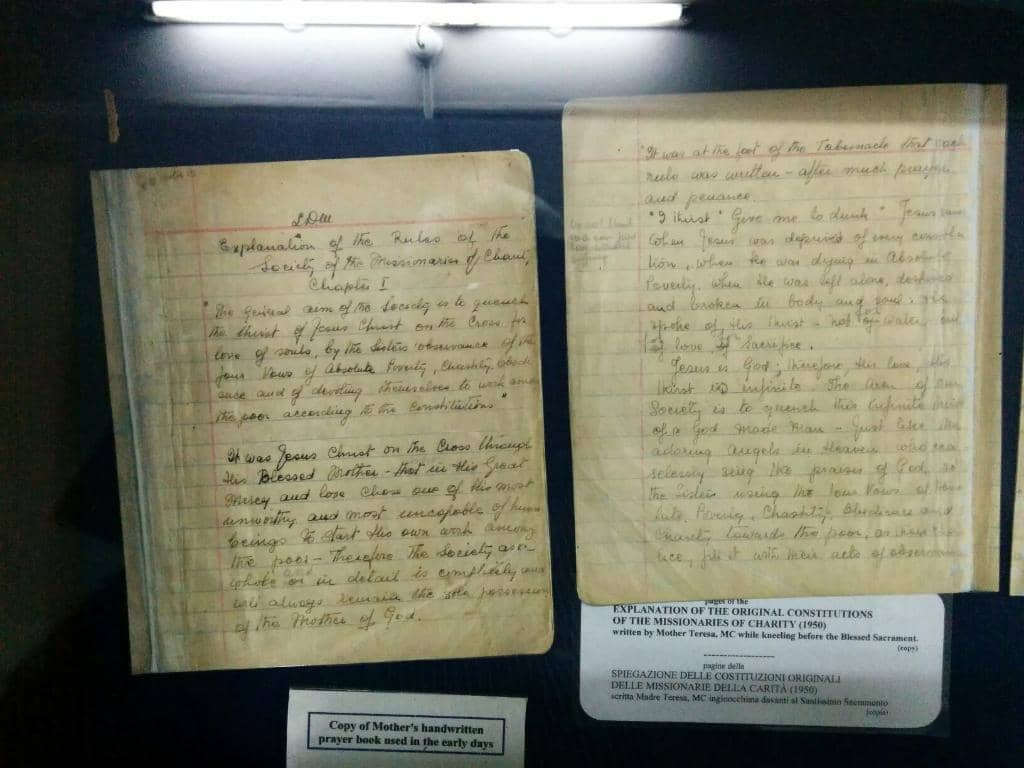 LDM
Explanation of the Rules of the
Society of the Missionaries of Charity
Chapter I
"The General aim of the Society is to quench
the thirst of Jesus Christ on the Cross for
love of souls, by the Sisters observance of the
four Vows of Absolute Poverty, Chastity, Obedi
ence and of devoting themselves to work among
the poor according to the Constitutions"
It was Jesus Christ on the Cross through
His Blessed Mother - that in His Great
Mercy and love chose one of His most
unworthy and most uncapable of human
beings to start His own work among
the poor - Therefore the Society as a
whole or in detail is completely and
will always remain the sole possession
of the Mother of God.
"It was at the foot of the Tabernacle that each
rule was written - after much prayer
and penance.
"I thirst" "Give me to drink" Jesus
When Jesus was deprived of every consola
tion, when He was dying in Absolute
Poverty, when He was left alone, despised
and broken in body and soul. He
spoke of His thirst - not for water, but
for love, for sacrifice.
Jesus is God; therefore, His love, His
thirst is infinite. The Aim of our
Society is to quench this infinite thirst
of a God made Man - Just like the
adoring Angels in Heaven who cea
selessly sing the praises of God, so
the Sisters using the four Vows of Abso
lute Poverty, Chastity, Obedience and
Charity towards the poor,
with their acts of
pages of the
EXPLANATION OF THE ORIGINAL CONSTITUTIONS
OF THE MISSIONARIES OF CHARITY (1950)
written by Mother Teresa, MC while kneeling before the Blessed Sacrament.
(copy)
pagine delle
SPIEGAZIONE DELLE COSTITUZIONI ORIGINALI
DELLE MISSIONARIE DELLA CARITÀ (1950)
scritta Madre Teresa, MC inginocchiana davanti al Santissimo Sacramento
(copia)
Copy of Mother's handwritten
prayer book used in the early days